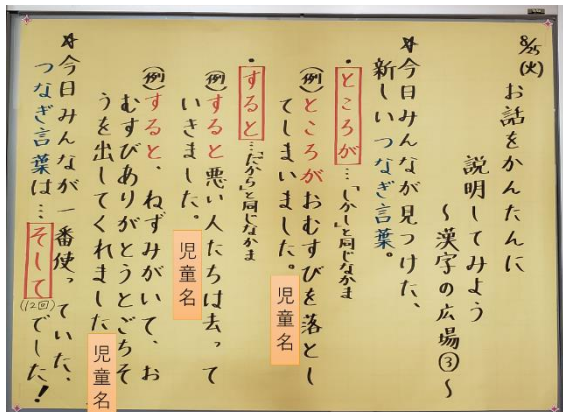 8/25(火)
お話をかんたんに
説明してみよう
～漢字の広場③～
☆今日みんなが見つけた、
新しいつなぎ言葉。
・ところが…「しかし」と同じなかま
(例)ところがおむすびを落とし
てしまいました。児童名
・すると…「だから」と同じなかま
(例)すると悪い人たちは去って
いきました。児童名
(例)すると、ねずみがいて、お
むすびありがとうとごちそ
うを出してくれました児童名
☆今日みんなが一番使っていた、
つなぎ言葉は…そして(12回)でした!